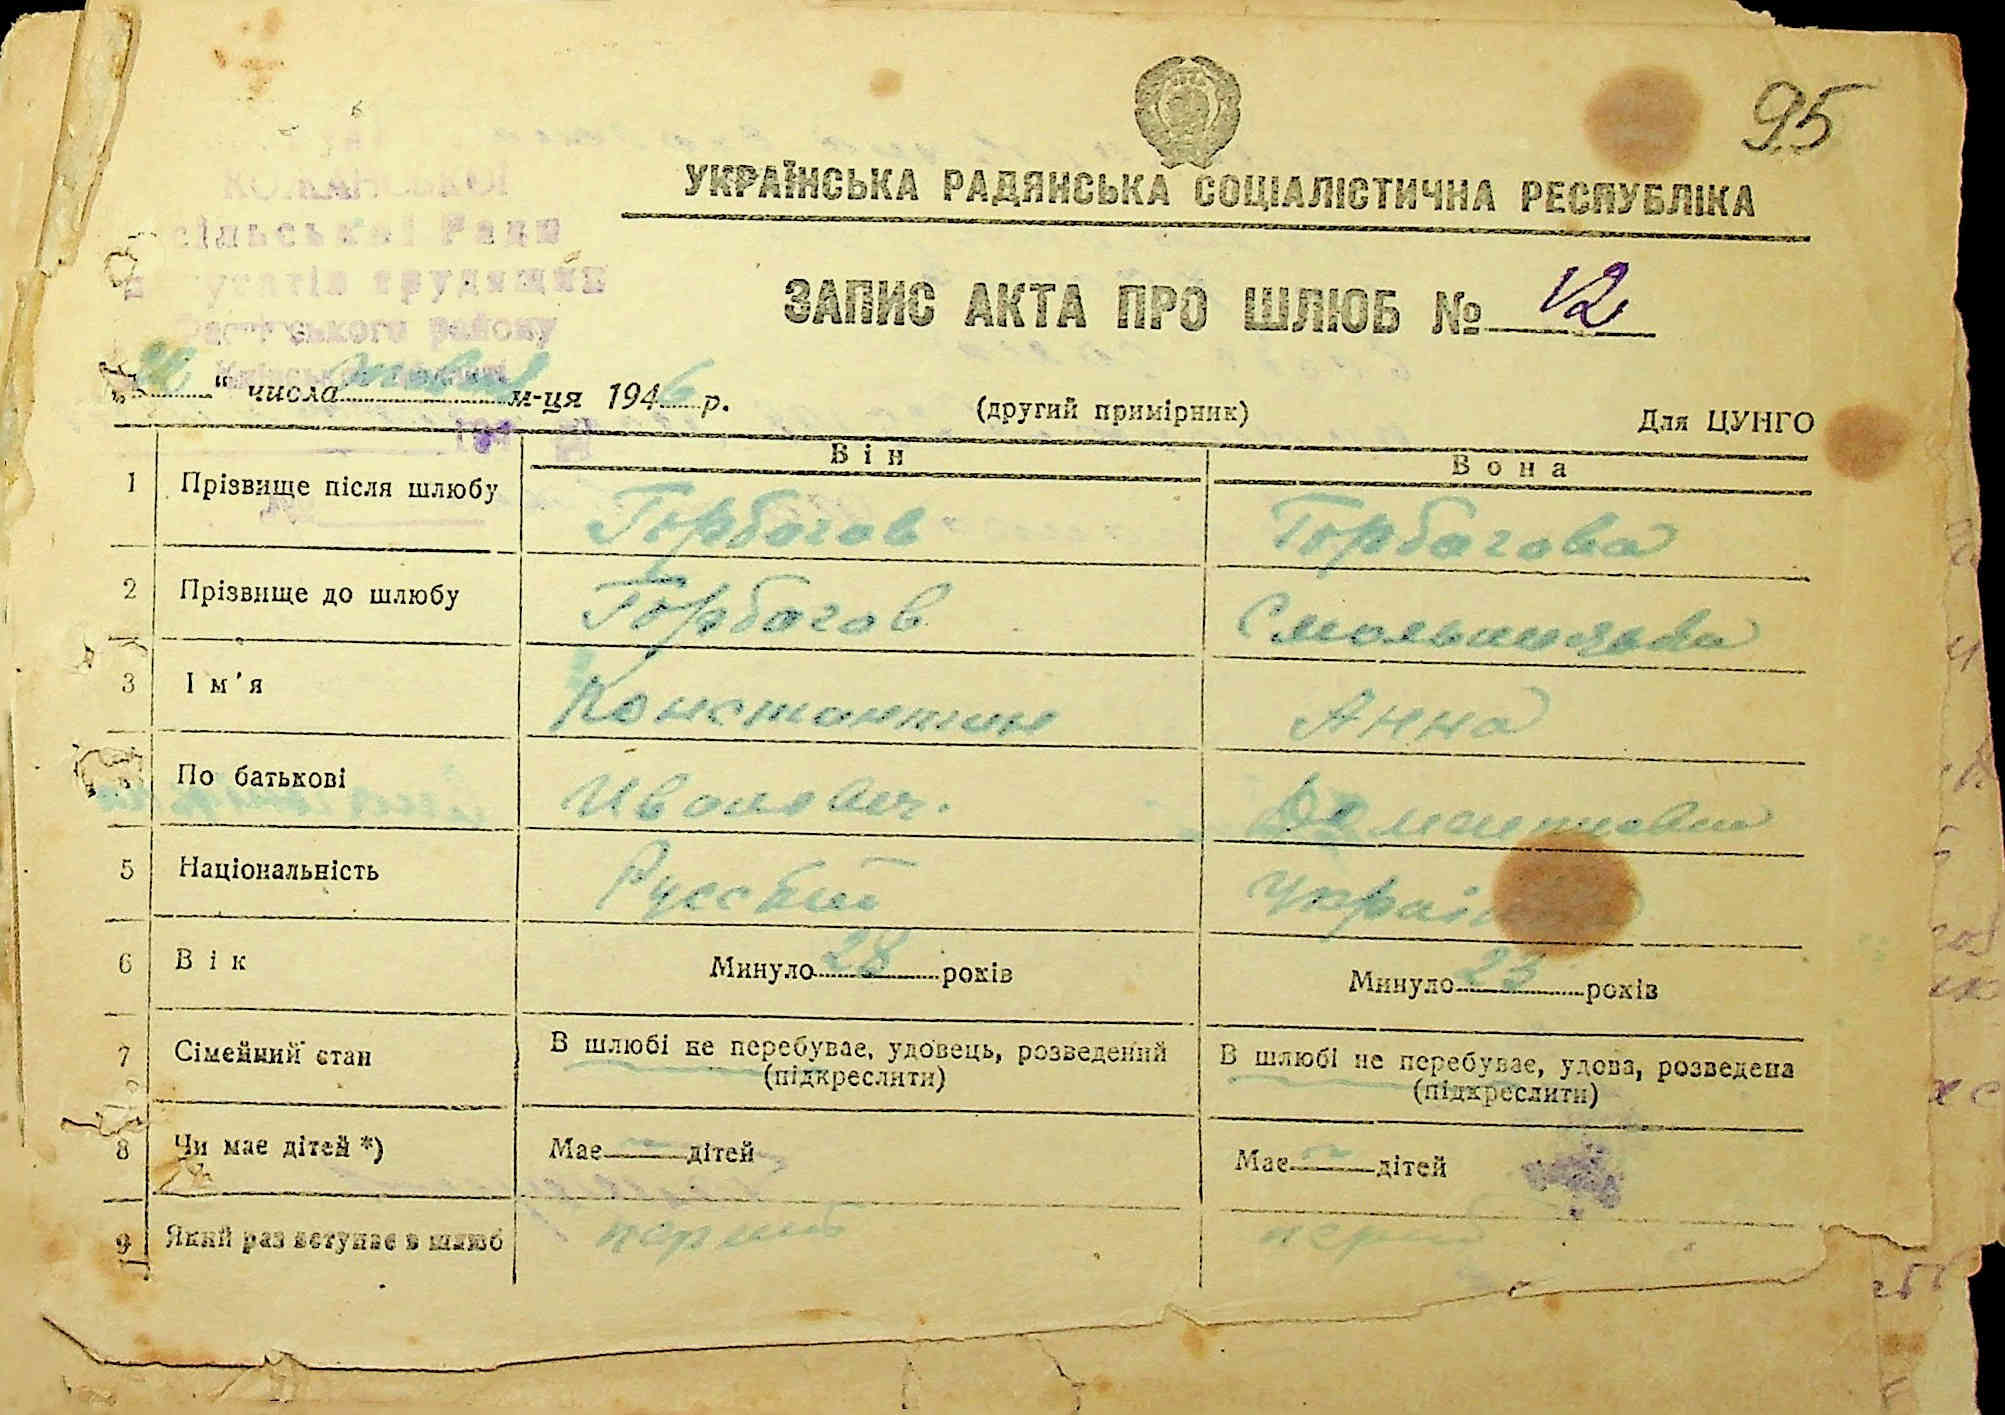 95
УКРАЇНСЬКА РАДЯНСЬКА СОЦІАЛІСТИЧНА РЕСПУБЛІКА
сільської Ради
трудящих
району
ЗАПИС АКТА ПРО ШЛЮБ № 12
“ числа м-ця 1946 р.
(другий примірник)
Для ЦУНГО
Він Вона
1 Прізвище після шлюбу Горбатов Горбатова
2 Прізвище до шлюбу Горбатов
3 Ім'я Константин Анна
По батькові Иванович.
5 Національність Русский
6 Вік Минуло 28 років Минуло 23 років
7 Сімейний стан В шлюбі не перебуває, удовець, розведений (підкреслити) В шлюбі не перебуває, удова, розведена (підкреслити)
8 Чи має дітей *) Має — дітей Має — дітей
9 Який раз вступає в шлюб перший